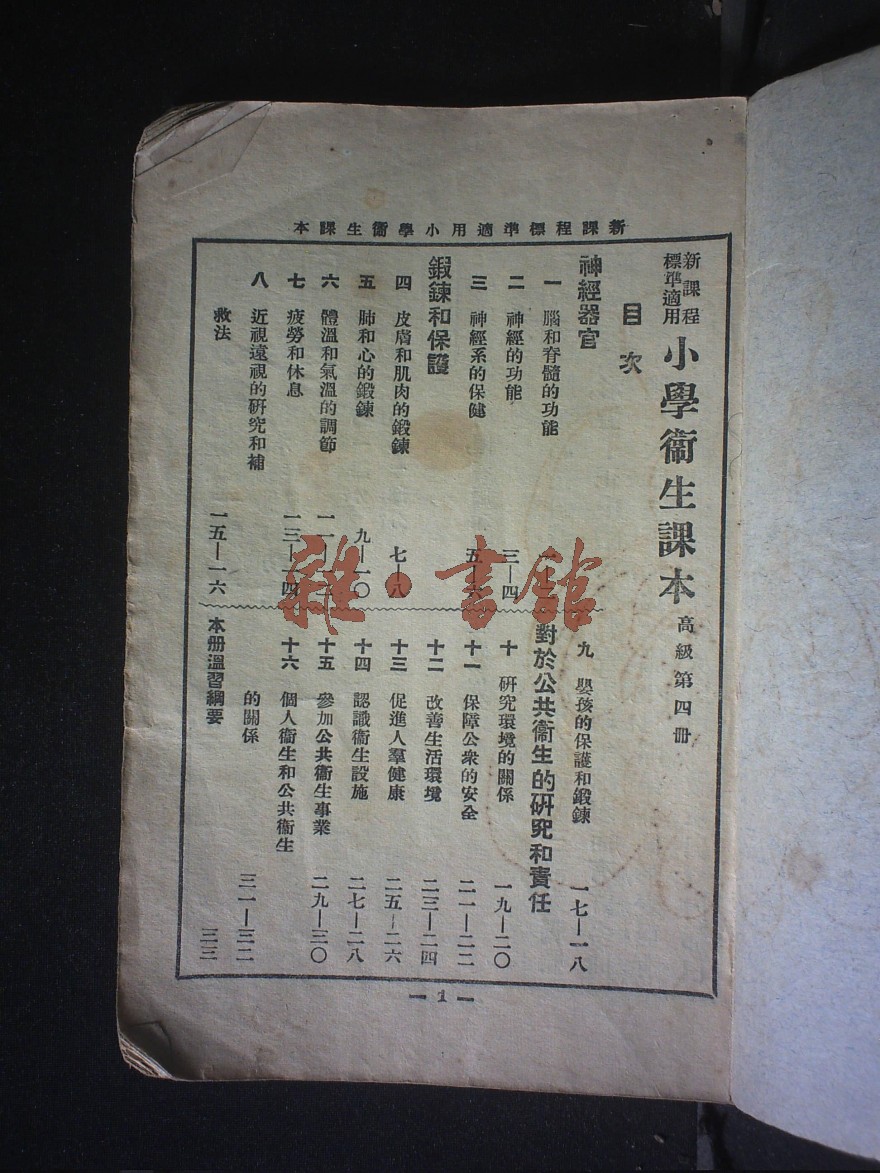 新課程標準適用小學衞生課本
新課程
標準適用
小學衞生課本 高級第四册
目次
神經器官
一 腦和脊髓的功能
二 神經的功能 三—四
三 神經系的保健
鍛鍊和保護
四 皮膚和肌肉的鍛鍊 七—八
五 肺和心的鍛鍊 九—一〇
六 體溫和氣溫的調節
七 疲勞和休息 一三—一四
八 近視遠視的硏究和補
救法 一五—一六
九 嬰孩的保護和鍛鍊 一七—一八
對於公共衞生的硏究和責任
十 硏究環境的關係 一九—二〇
十一 保障公衆的安全 二一—二二
十二 改善生活環境 二三—二四
十三 促進人羣健康 二五—二六
十四 認識衞生設施 二七—二八
十五 參加公共衞生事業 二九—三〇
十六 個人衞生和公共衞生
的關係 三一—三二
本册溫習綱要 三三
— 1 —
雜·書館